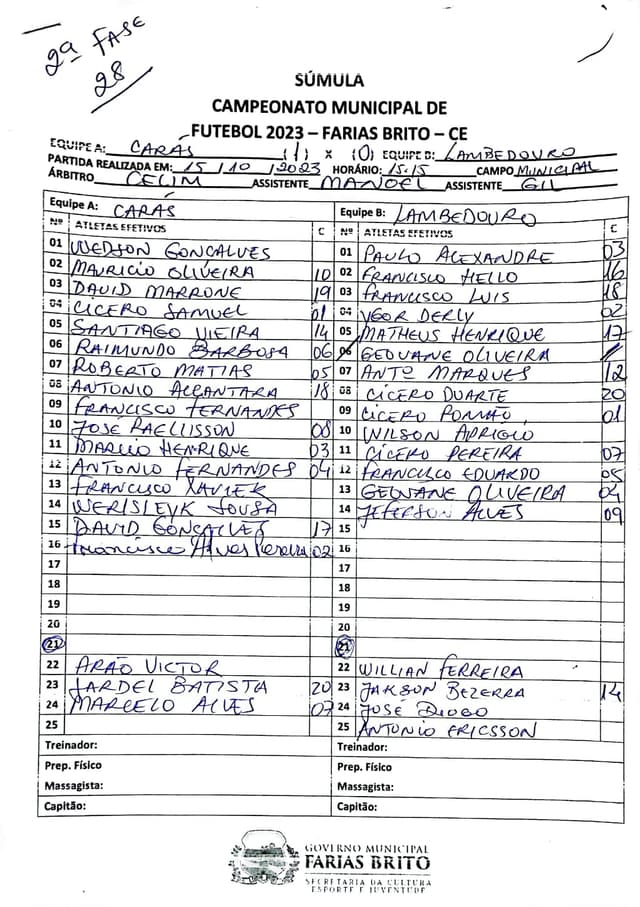 2ª FASE
28
SÚMULA
CAMPEONATO MUNICIPAL DE
FUTEBOL 2023 – FARIAS BRITO – CE
EQUIPE A: CARÁS (1) x (0) EQUIPE B: LAMBEDOURO
PARTIDA REALIZADA EM: 15/10/2023 HORÁRIO: 15:15 CAMPO MUNICIPAL
ÁRBITRO CELIM ASSISTENTE MANOEL ASSISTENTE GIL
Equipe A: CARÁS Equipe B: LAMBEDOURO
Nº ATLETAS EFETIVOS C Nº ATLETAS EFETIVOS C
01 WEDSON GONCALVES 01 PAULO ALEXANDRE 03
02 MAURICIO OLIVEIRA 10 02 FRANCISCO HELLO 16
03 DAVID MARRONE 19 03 FRANCISCO LUIS 18
04 CICERO SAMUEL 01 04 YGOR DERLY 02
05 SANTIAGO VIEIRA 14 05 MATHEUS HENRIQUE 17
06 RAIMUNDO BARBOSA 06 06 GEOVANE OLIVEIRA
07 ROBERTO MATIAS 05 07 ANTº MARQUES 12
08 ANTONIO ALCANTARA 18 08 CÍCERO DUARTE 20
09 FRANCISCO FERNANDES 09 CÍCERO 01
10 JOSÉ RAELLISSON 08 10 WILSON
11 MARCIO HENRIQUE 03 11 CÍCERO PEREIRA 07
12 ANTONIO FERNANDES 04 12 FRANCISCO EDUARDO 05
13 FRANCISCO XAVIER 13 GEOVANE OLIVEIRA 04
14 WERISLEYK SOUSA 14 JEFERSON ALVES 09
15 DAVID GONÇALVES 17 15
16 Francisco Alves Pereira 02 16
17 17
18 18
19 19
20 20
21 21
22 ARÃO VICTOR 22 WILLIAN FERREIRA
23 JARDEL BATISTA 20 23 JAKSON BEZERRA 14
24 MARCELO ALVES 07 24 JOSÉ DIOGO
25 25 ANTONIO ERICSSON
Treinador: Treinador:
Prep. Físico Prep. Físico
Massagista: Massagista:
Capitão: Capitão:
GOVERNO MUNICIPAL
FARIAS BRITO
SECRETARIA DA CULTURA
ESPORTE E JUVENTUDE